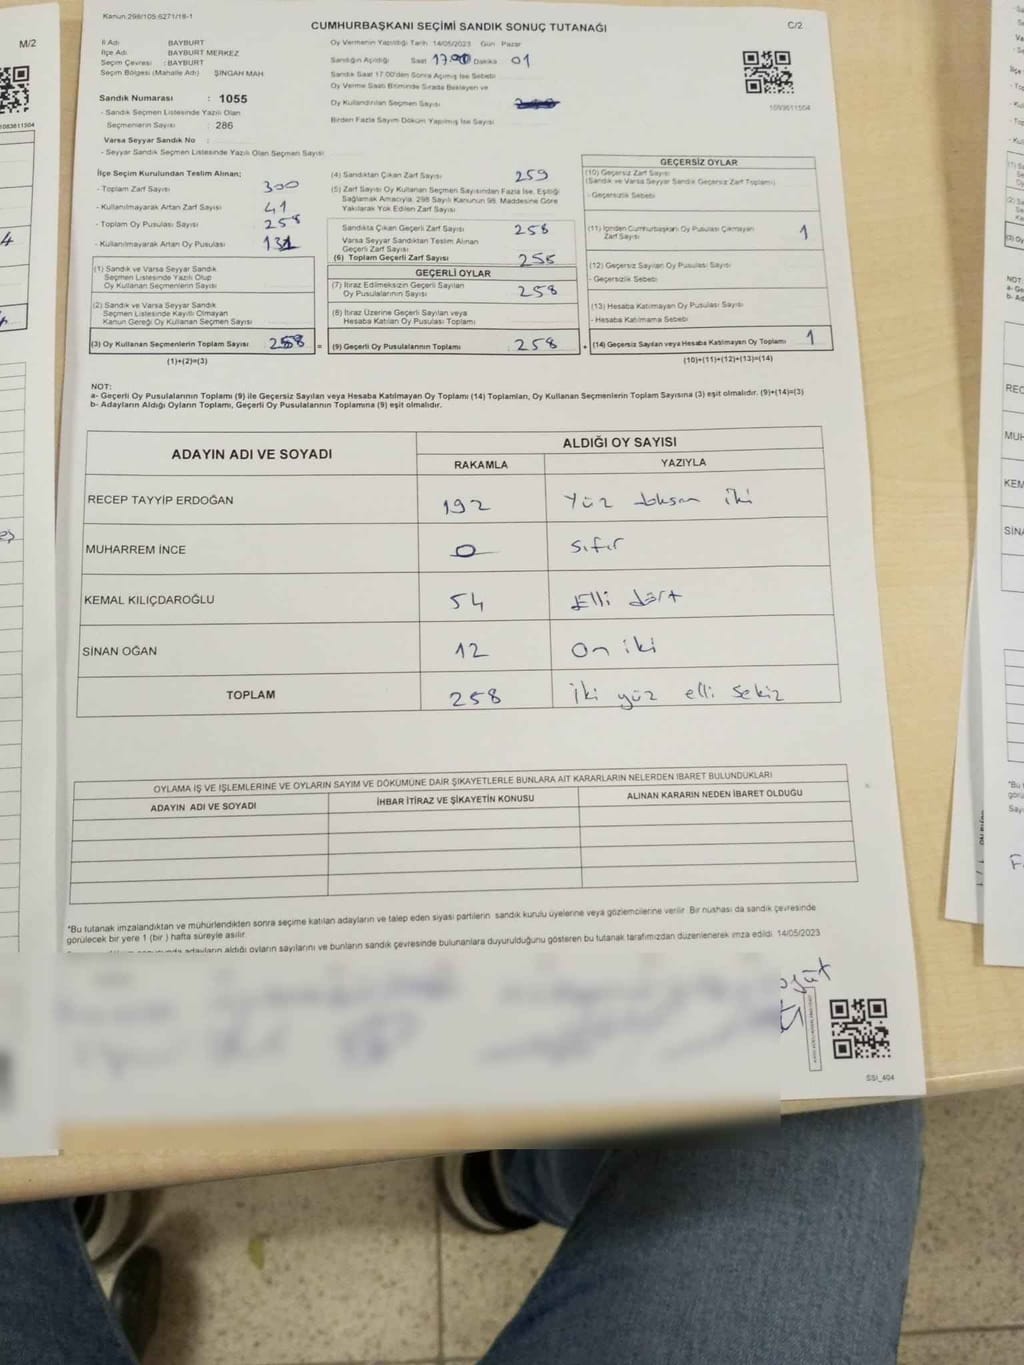 Kanun:298/105:6271/18-1
CUMHURBAŞKANI SEÇİMİ SANDIK SONUÇ TUTANAĞI
C/2
M/2
İl Adı BAYBURT
İlçe Adı BAYBURT MERKEZ
Seçim Çevresi : BAYBURT
Seçim Bölgesi (Mahalle Adı) ŞİNGAH MAH
Oy Vermenin Yapıldığı Tarih 14/05/2023 Gün Pazar
Sandığın Açıldığı Saat 17.00 Dakika 01
Sandık Saat 17.00'den Sonra Açılmış İse Sebebi
Oy Verme Saati Bitiminde Sırada Bekleyen ve
Oy Kullandırılan Seçmen Sayısı
Birden Fazla Sayım Döküm Yapılmış İse Sayısı
Sandık Numarası : 1055
- Sandık Seçmen Listesinde Yazılı Olan
Seçmenlerin Sayısı : 286
Varsa Seyyar Sandık No :
- Seyyar Sandık Seçmen Listesinde Yazılı Olan Seçmen Sayısı
İlçe Seçim Kurulundan Teslim Alınan;
- Toplam Zarf Sayısı 300
- Kullanılmayarak Artan Zarf Sayısı 41
- Toplam Oy Pusulası Sayısı 258
- Kullanılmayarak Artan Oy Pusulası
(1) Sandık ve Varsa Seyyar Sandık
Seçmen Listesinde Yazılı Olup
Oy Kullanan Seçmenlerin Sayısı
(2) Sandık ve Varsa Seyyar Sandık
Seçmen Listesinde Kayıtlı Olmayan
Kanun Gereği Oy Kullanan Seçmen Sayısı
(3) Oy Kullanan Seçmenlerin Toplam Sayısı 258 =
(1)+(2)=(3)
(4) Sandıktan Çıkan Zarf Sayısı 259
(5) Zarf Sayısı Oy Kullanan Seçmen Sayısından Fazla İse, Eşitliği
Sağlamak Amacıyla, 298 Sayılı Kanunun 98. Maddesine Göre
Yakılarak Yok Edilen Zarf Sayısı
Sandıkta Çıkan Geçerli Zarf Sayısı 258
Varsa Seyyar Sandıktan Teslim Alınan
Geçerli Zarf Sayısı
(6) Toplam Geçerli Zarf Sayısı
GEÇERLİ OYLAR
(7) İtiraz Edilmeksizin Geçerli Sayılan
Oy Pusulalarının Sayısı 258
(8) İtiraz Üzerine Geçerli Sayılan veya
Hesaba Katılan Oy Pusulası Toplamı
(9) Geçerli Oy Pusulalarının Toplamı 258 +
GEÇERSİZ OYLAR
(10) Geçersiz Zarf Sayısı
(Sandık ve Varsa Seyyar Sandık Geçersiz Zarf Toplamı)
- Geçersizlik Sebebi
(11) İçinden Cumhurbaşkanı Oy Pusulası Çıkmayan
Zarf Sayısı 1
(12) Geçersiz Sayılan Oy Pusulası Sayısı
- Geçersizlik Sebebi
(13) Hesaba Katılmayan Oy Pusulası Sayısı
- Hesaba Katılmama Sebebi
(14) Geçersiz Sayılan veya Hesaba Katılmayan Oy Toplamı 1
(10)+(11)+(12)+(13)=(14)
NOT:
a- Geçerli Oy Pusulalarının Toplamı (9) ile Geçersiz Sayılan veya Hesaba Katılmayan Oy Toplamı (14) Toplamları, Oy Kullanan Seçmenlerin Toplam Sayısına (3) eşit olmalıdır. (9)+(14)=(3)
b- Adayların Aldığı Oyların Toplamı, Geçerli Oy Pusulalarının Toplamına (9) eşit olmalıdır.
ADAYIN ADI VE SOYADI
ALDIĞI OY SAYISI
RAKAMLA YAZIYLA
RECEP TAYYİP ERDOĞAN 192 Yüz doksan iki
MUHARREM İNCE 0 Sıfır
KEMAL KILIÇDAROĞLU 54 Elli dört
SİNAN OĞAN 12 On iki
TOPLAM 258 İki yüz elli sekiz
OYLAMA İŞ VE İŞLEMLERİNE VE OYLARIN SAYIM VE DÖKÜMÜNE DAİR ŞİKAYETLERLE BUNLARA AİT KARARLARIN NELERDEN İBARET BULUNDUKLARI
ADAYIN ADI VE SOYADI İHBAR İTİRAZ VE ŞİKAYETİN KONUSU ALINAN KARARIN NEDEN İBARET OLDUĞU
*Bu tutanak imzalandıktan ve mühürlendikten sonra seçime katılan adayların ve talep eden siyasi partilerin sandık kurulu üyelerine veya gözlemcilerine verilir. Bir nüshası da sandık çevresinde
görülecek bir yere 1 (bir) hafta süreyle asılır.
adayların aldığı oyların sayılarını ve bunların sandık çevresinde bulunanlara duyurulduğunu gösteren bu tutanak tarafımızdan düzenlenerek imza edildi. 14/05/2023
SSI_404